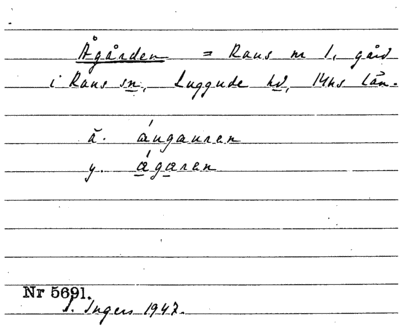 Ågården = Raus nr 1, gård
i Raus sn, Luggude hd, Mhs län.
ä. áugauren
y. ágaren
Nr 5691.
I. Ingers 1947.